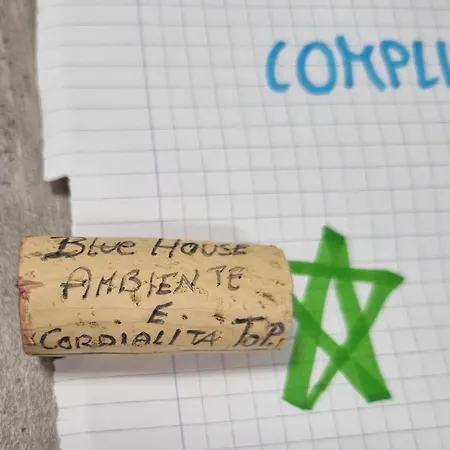 COMPLI
Blue House
AMBIENTE
. E .
CORDIALITA TOP.